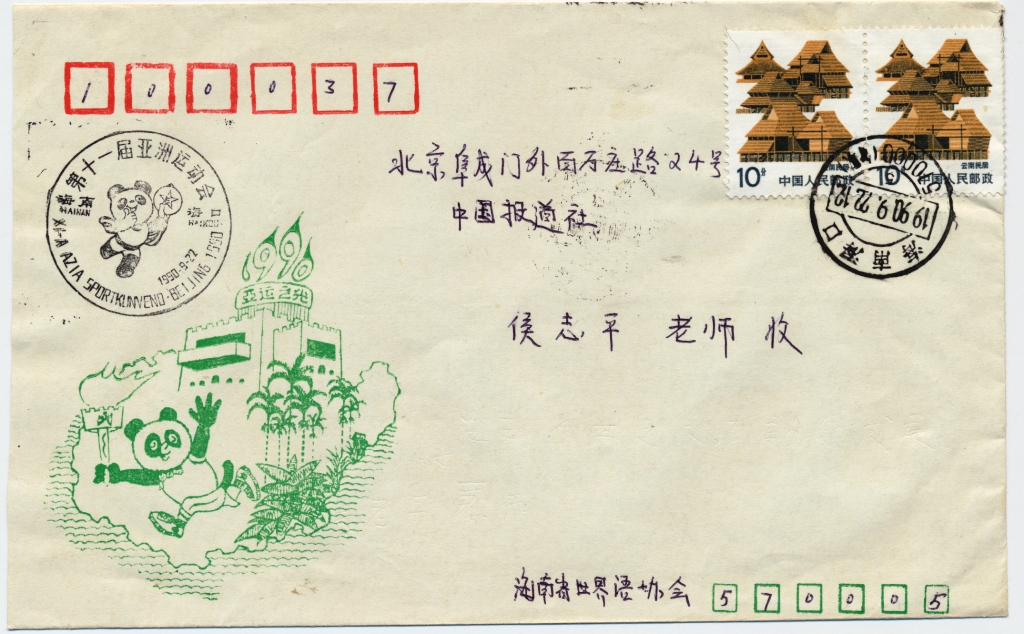 100037
北京阜成门外百万庄路24号
中国报道社
侯志平 老师 收
海南省世界语协会
570005
10分 中国人民邮政
云南民居
10分 中国人民邮政
云南民居
1990.9.22.12
海南 海口
第十一届亚洲运动会
海南
HAINAN
1990-9-22
XI-A AZIA SPORTKUNVENO-BEIJING 1990
1990
亞运之光